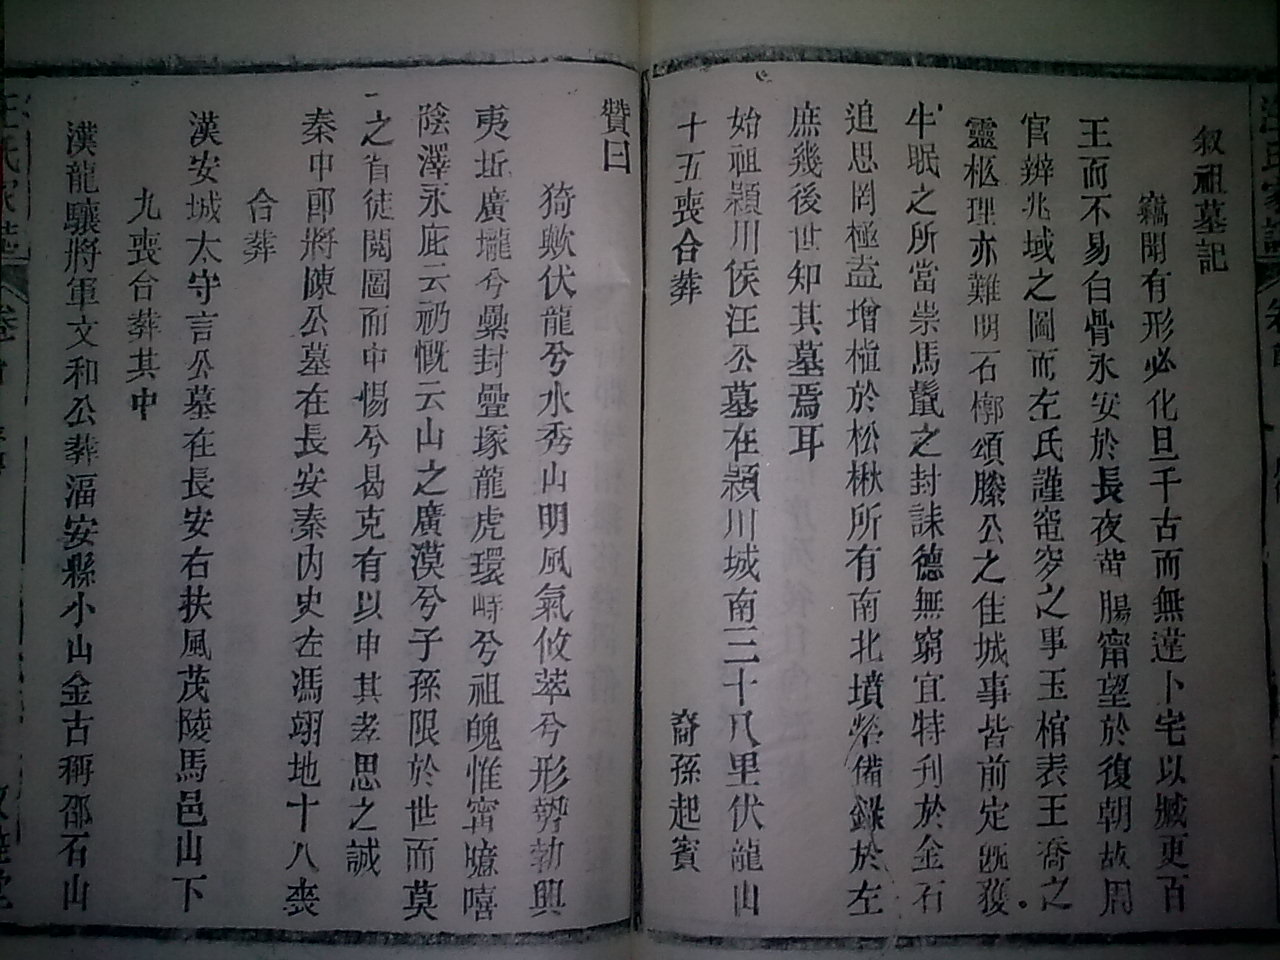 叙祖墓記
竊聞有形必化旦千古而無違卜宅以臧更百
王而不易白骨永安於長夜黃腸甯望於復朝故周
官辨兆域之圖而左氏謹窀穸之事玉棺表王喬之
靈柩理亦難明石槨頌滕公之佳城事皆前定旣獲
牛眠之所當崇馬鬣之封誄德無窮宜特刋於金石
追思罔極盍增植於松楸所有南北墳塋備錄於左
庶幾後世知其墓焉耳
始祖潁川侯汪公墓在潁川城南三十八里伏龍山
十五喪合葬
裔孫起賓
贊曰
猗歟伏龍兮水秀山明風氣攸萃兮形勢勃興
夷坵廣壠兮纍封疊塚龍虎環峙兮祖魄惟甯噫嘻
陰澤永庇云礽慨云山之廣漠兮子孫限於世而莫
之省徒閱圖而中惕兮曷克有以申其孝思之誠
秦中郎將陳公墓在長安秦內史在馮翊地十八喪
合葬
漢安城太守言公墓在長安右扶風茂陵馬邑山下
九喪合葬其中
漢龍驤將軍文和公葬湢安縣小山金古稱邵石山
汪氏家譜